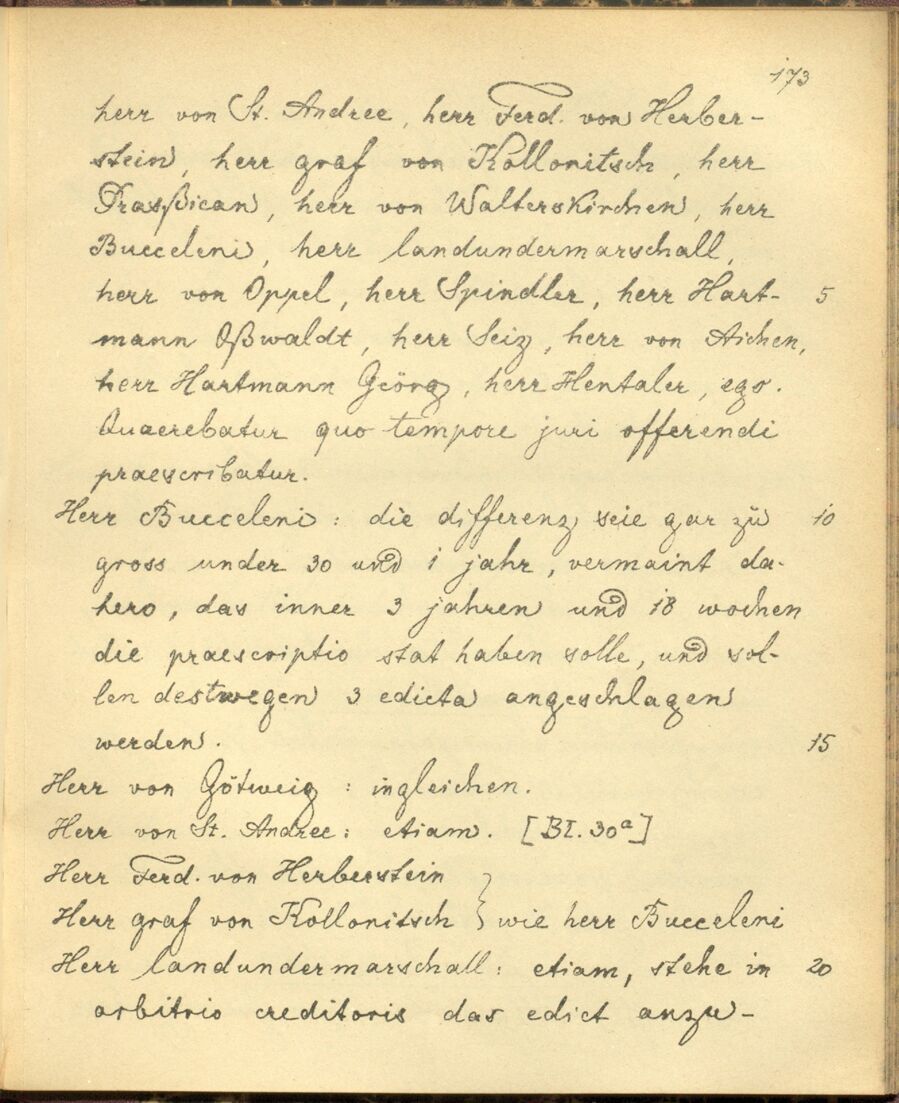 173
herr von St. Andree, herr Ferd. von Herber-
stein, herr graf von Kollonitsch, herr
Prasßican, herr von Walterskirchen, herr
Bucceleni, herr landundermarschall,
herr von Oppel, herr Spindler, herr Hart- 5
mann Oßwaldt, herr Seiz, herr von Aichen,
herr Hartmann Geörg, herr Hentaler, ego.
Quaerebatur quo tempore juri offerendi
praescribatur.
Herr Bucceleni: die differenz seie gar zů 10
gross under 30 und 1 jahr, vermaint da-
hero, das inner 3 jahren und 18 wochen
die praescriptio stat haben solle, und sol-
len destwegen 3 edicta angeschlagen
werden. 15
Herr von Götweig: ingleichen.
Herr von St. Andree: etiam. [Bl. 30a]
Herr Ferd. von Herberstein
Herr graf von Kollonitsch } wie herr Bucceleni
Herr landundermarschall: etiam, stehe in 20
arbitrio creditoris das edict anzu-